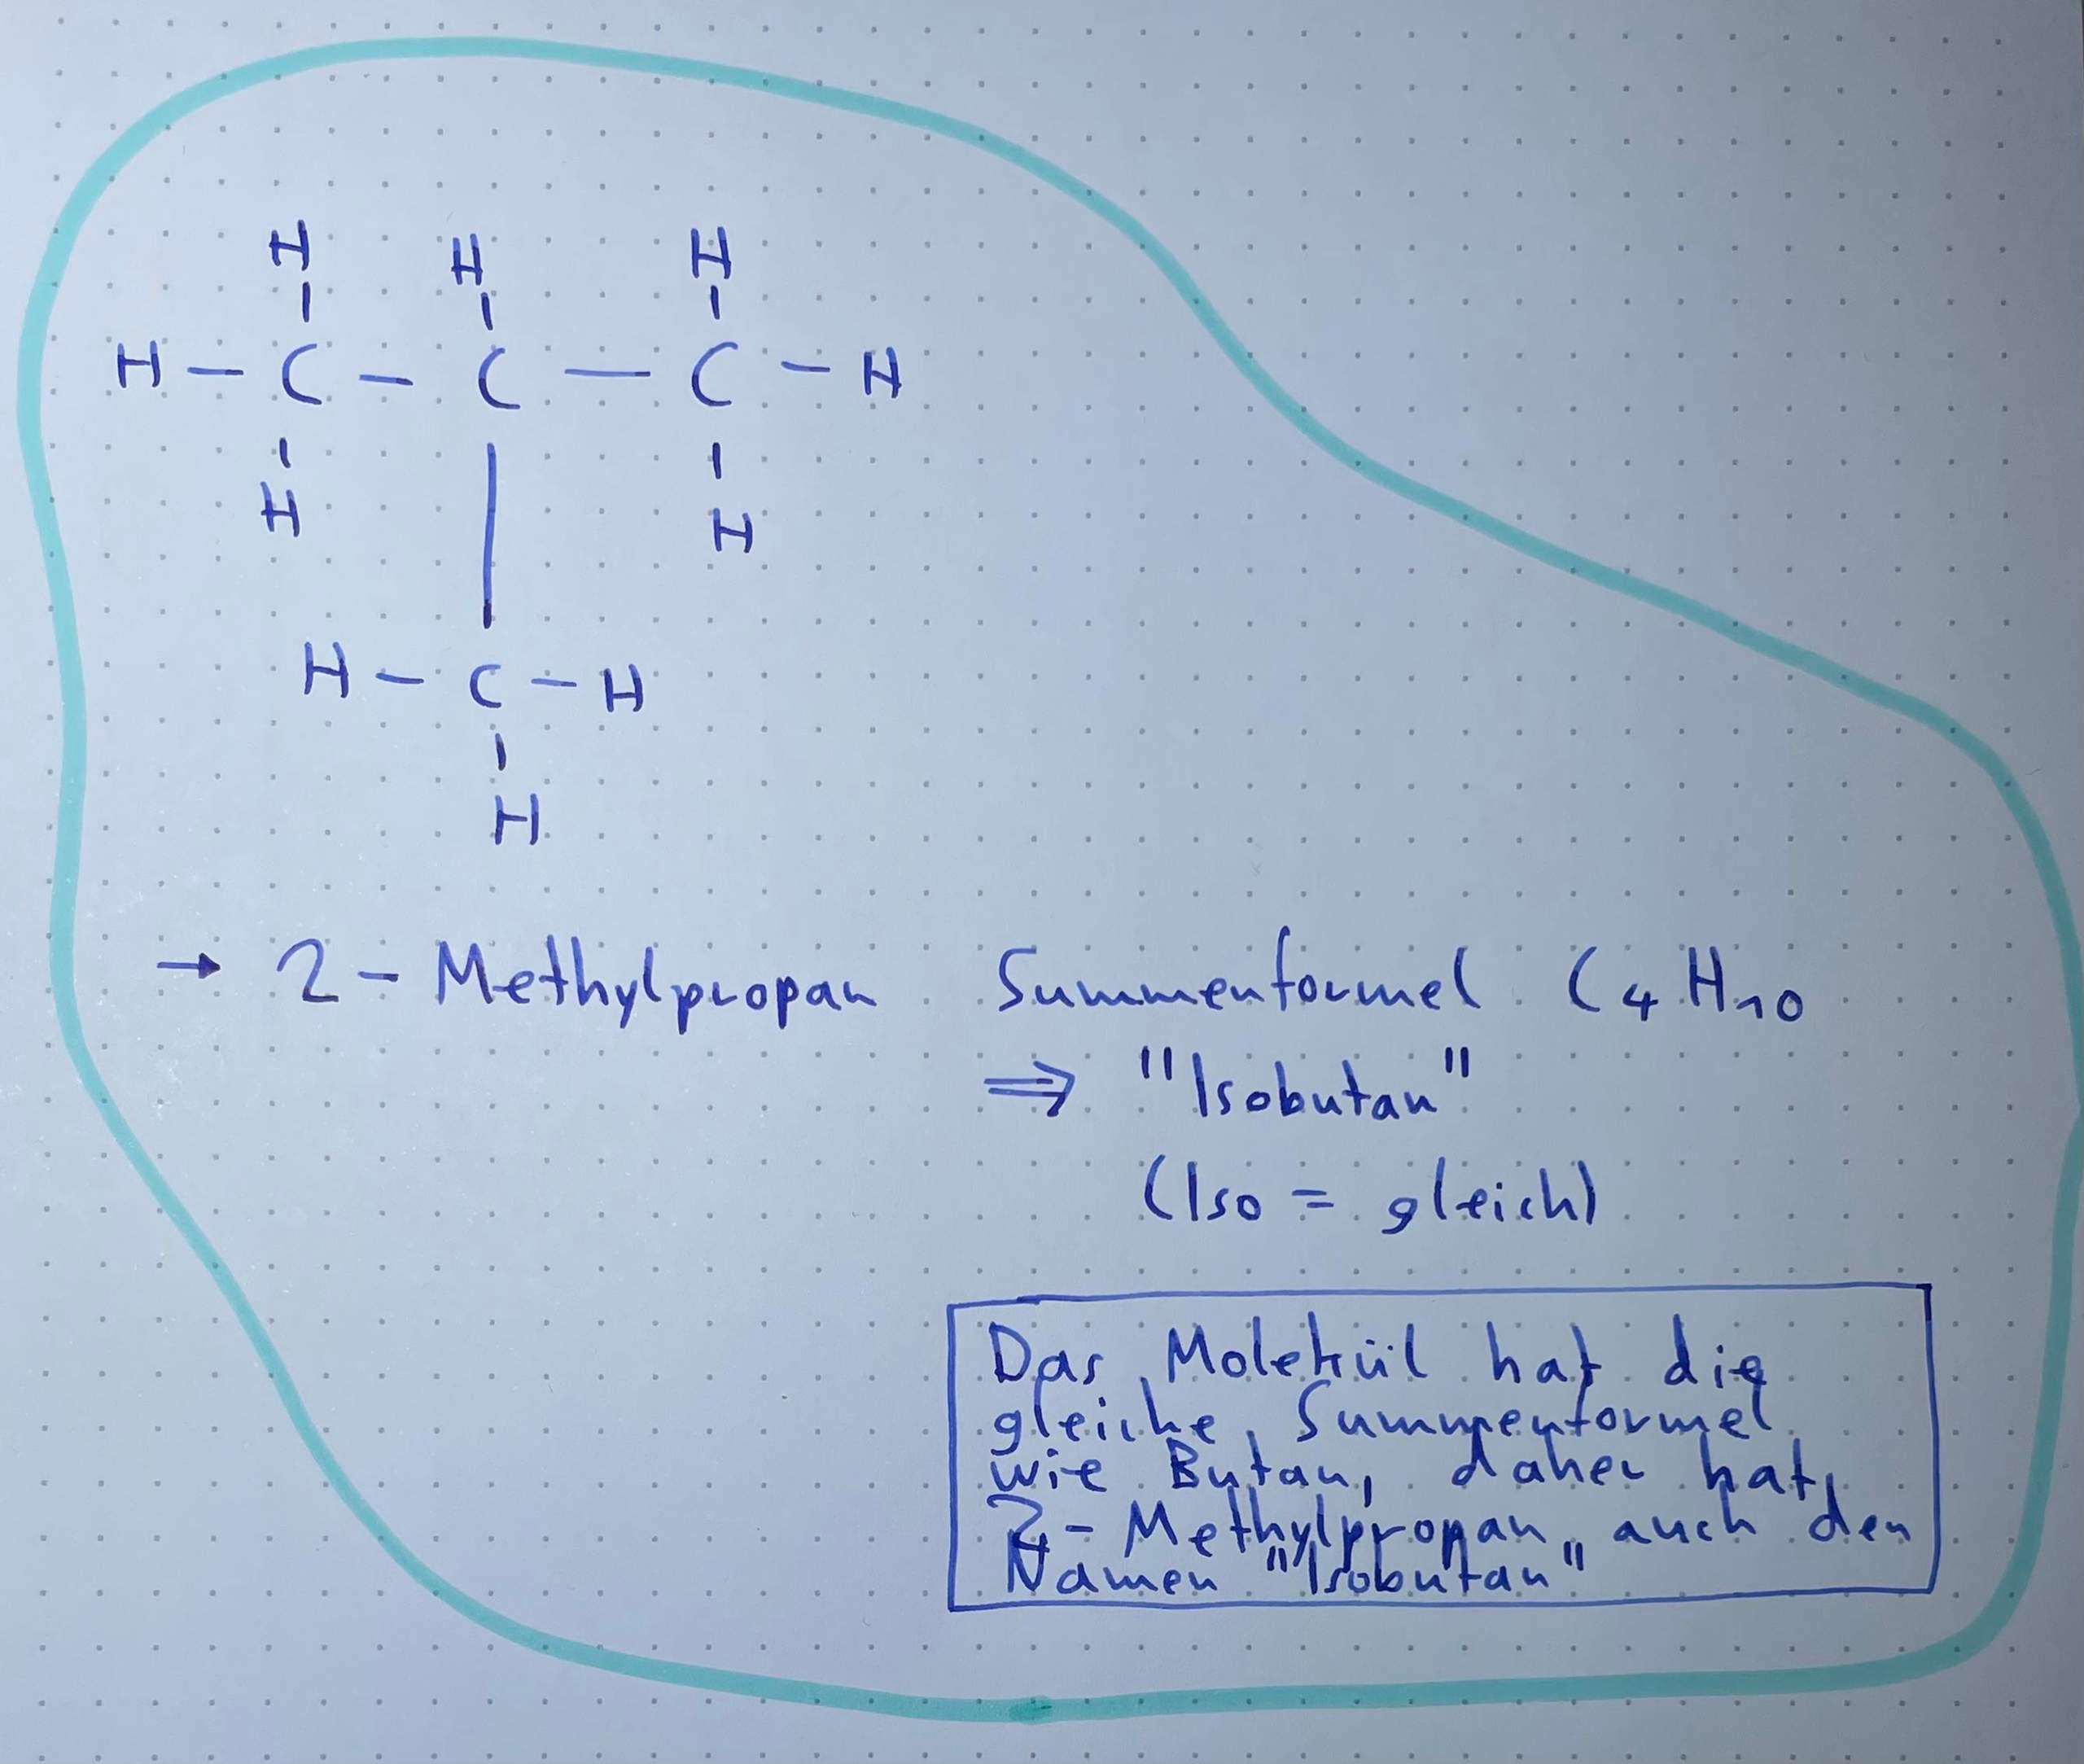 H H H
H – C – C — C – H
H H
H – C – H
H
→ 2 - Methylpropan Summenformel C₄H₁₀
⇒ "Isobutan"
(Iso = gleich)
Das Molekül hat die
gleiche Summenformel
wie Butan, daher hat
2-Methylpropan auch den
Namen "Isobutan"